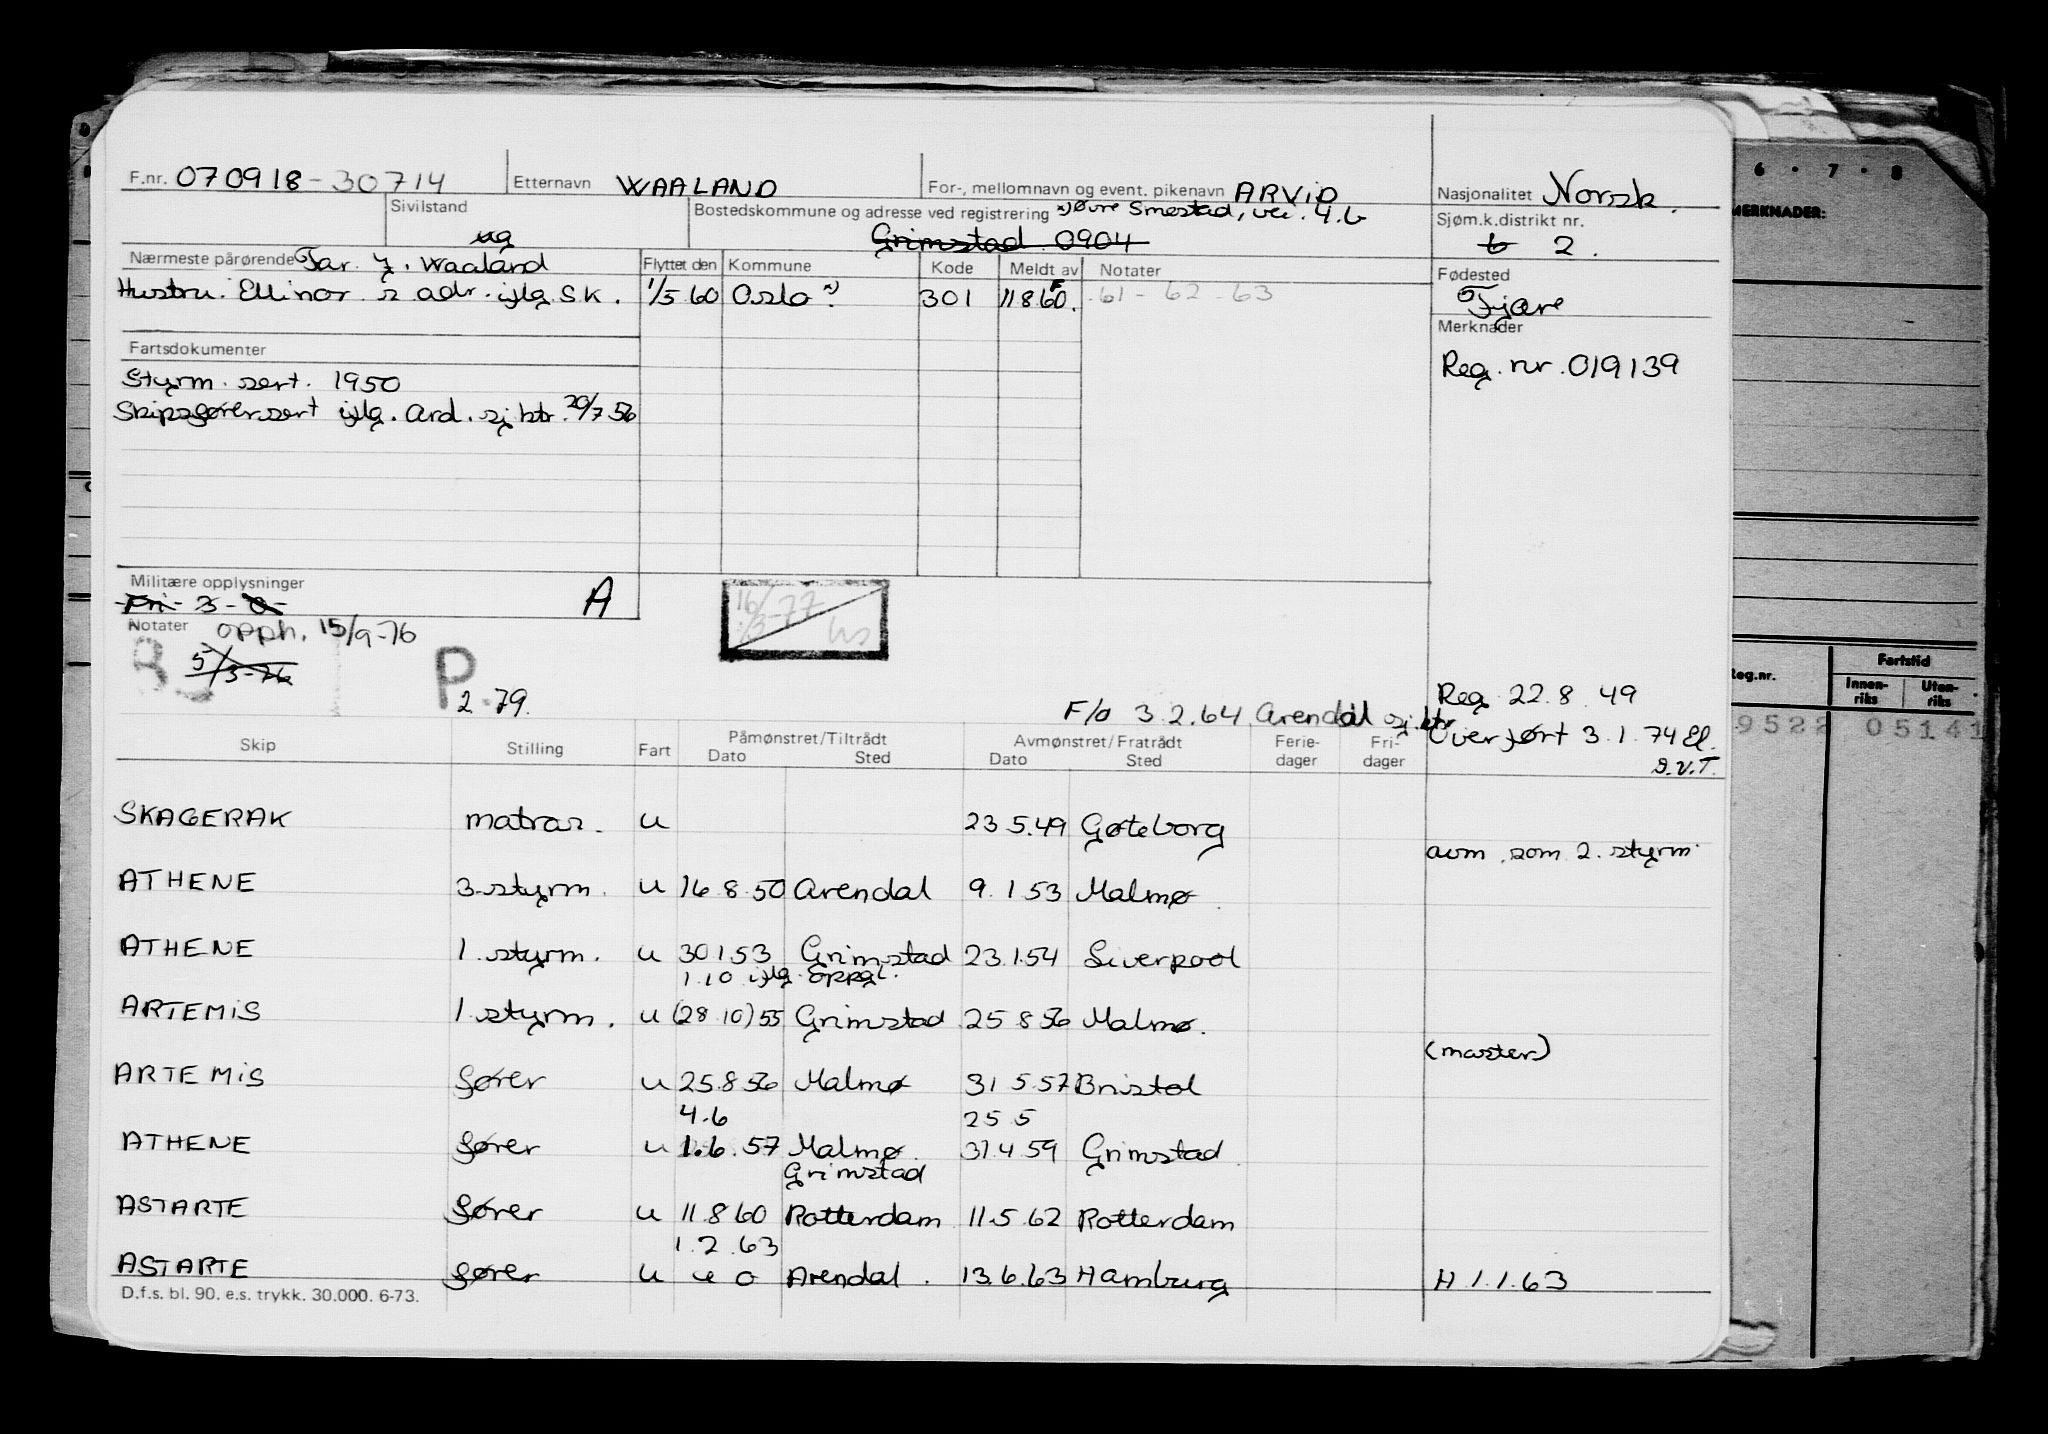 F.nr. 070918-30714 Etternavn WAALAND For-, mellomnavn og event. pikenavn ARVID Nasjonalitet Norsk.
Sivilstand ug Bostedskommune og adresse ved registrering x) Øvre Smestad, vei. 4.b Sjøm.k.distrikt nr.
Grimstad 0904 6 2.
Nærmeste pårørende Far. J. Waaland Flyttet den Kommune Kode Meldt av Notater Fødested
Hustru. Ellinor s adr. iflg. S.K. 1/5 60 Oslo x) 301 11860. 61 - 62 - 63 Fjære
Merknader
Fartsdokumenter Reg. nr. 019139
Styrm. sert. 1950
Skipsførersert iflg. Ard. sj.ktr. 20/7 56
Militære opplysninger A
Fri - 3 - 0 -
Notater opph. 15/9-76
5/3-76
16/3-77
P
2.79.
F/o 3.2.64 Arendal sj.ktr
Reg. 22.8.49
Overført 3.1.74 El.
D.V.T.
Skip Stilling Fart Påmønstret/Tiltrådt Dato Sted Avmønstret/Fratrådt Dato Sted Ferie-dager Fri-dager
SKAGERAK matros. u 23.5.49 Gøteborg
avm. som 2. styrm.
ATHENE 3. styrm. u 16.8.50 Arendal 9.1.53 Malmø
ATHENE 1. styrm. u 30153 Grimstad 23.1.54 Liverpool
1.10 iflg. oppg.
ARTEMIS 1. styrm. u (28.10) 55 Grimstad 25.8.56 Malmø.
(master)
ARTEMIS fører u 25.8.56 Malmø 31.5.57 Bristol
4.6 25 5
ATHENE fører u 1.6.57 Malmø. 31.4.59 Grimstad
Grimstad
ASTARTE fører u 11.8.60 Rotterdam 11.5.62 Rotterdam
1.2.63
ASTARTE fører u u o Arendal. 13.6.63 Hamburg H.1.1.63
D.f.s. bl. 90. e.s. trykk. 30.000. 6-73.
6 • 7 • 8
MERKNADER:
Reg.nr. Fartstid
Innen-riks Uten-riks
9522 05141